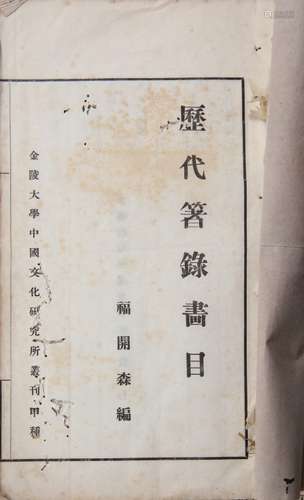 歷代著錄畫目
福開森編
金陵大學中國文化研究所叢刊甲種